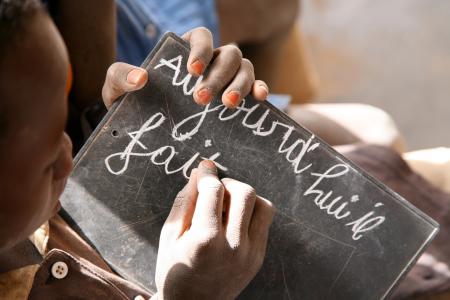 Aujourd'hui il
fait